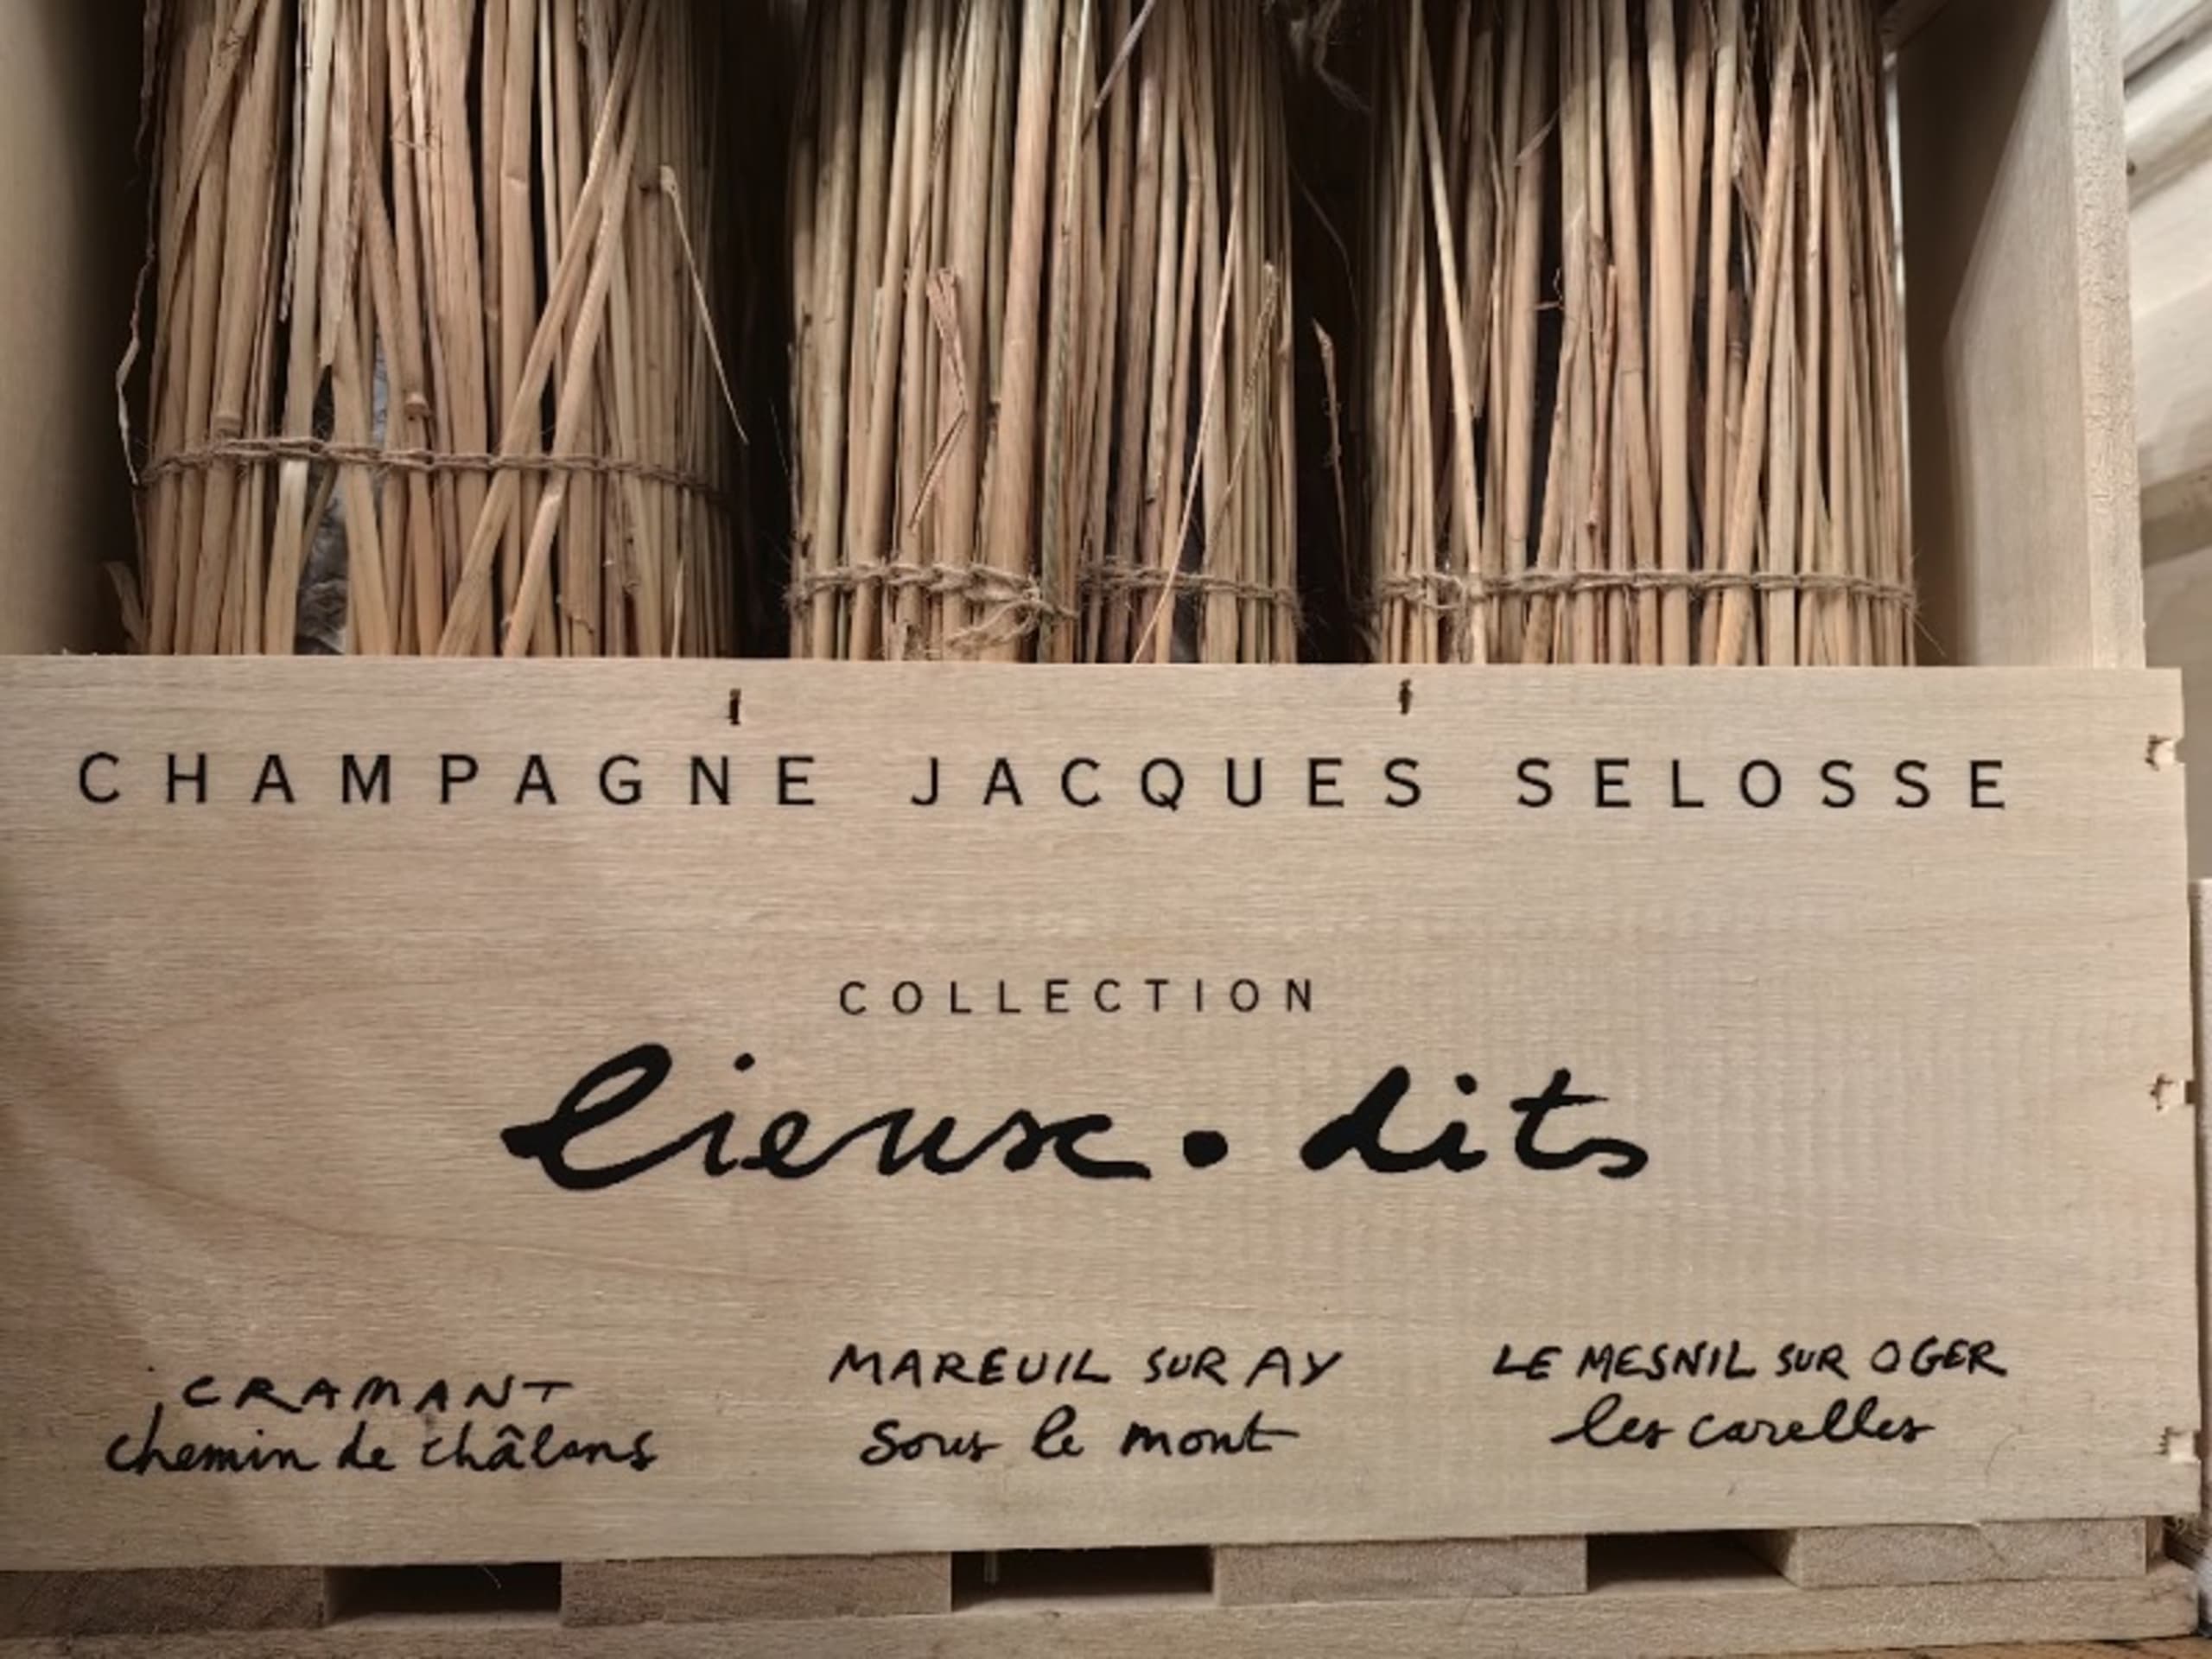 CHAMPAGNE JACQUES SELOSSE
COLLECTION
lieux • dits
CRAMANT
chemin de châlons
MAREUIL SUR AY
Sous le mont
LE MESNIL SUR OGER
les carelles